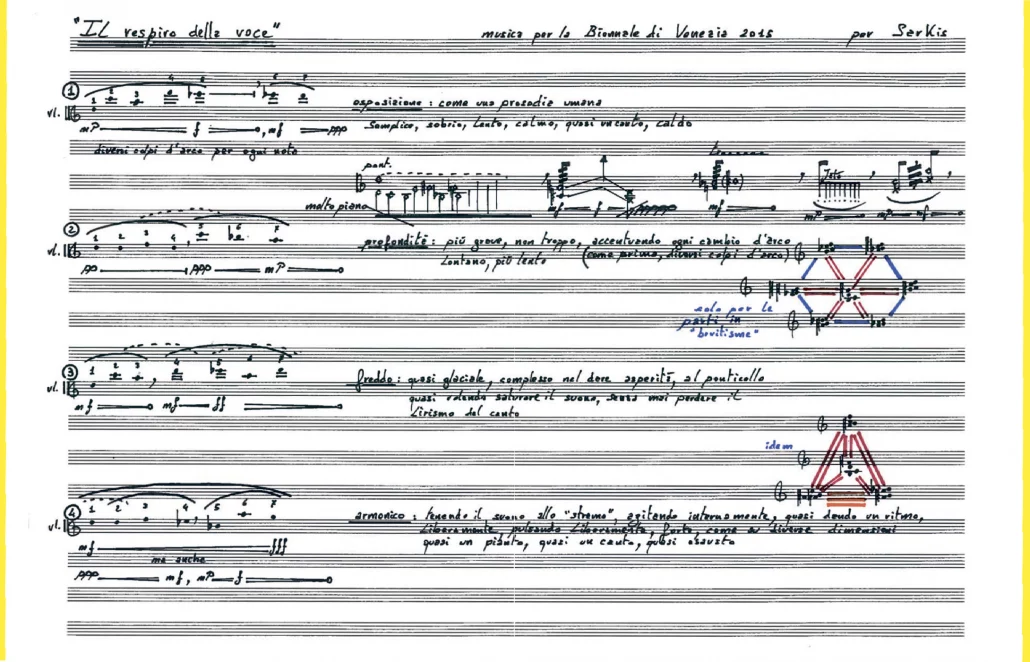 "Il respiro della voce" musica per la Biennale di Venezia 2015 per Sarkis
1 2 3 4 5 6 7
① esposizione : come una prosodia umana
vl. Semplice, sobrio, Lento, calmo, quasi un canto, caldo
mP f , mf ppp
diversi colpi d'arco per ogni nota
pont.
molto piano mf f mf mP mP mf
② 1 2 3 4 5 6 7
vl. profondità : più grave, non troppo, accentuando ogni cambio d'arco
Lontano, più lento (come prima, diversi colpi d'arco)
pp ppp mP
solo per le
parti in
③ 1 2 3 4 5 6 7
vl. freddo : quasi glaciale, complesso nel dare asperità, al ponticello
quasi volendo saturare il suono, senza mai perdere il
Lirismo del canto
mf mf ff
idem
④ 1 2 3 4 5 6 7
vl. armonico : tenendo il suono allo "stremo", agitando internamente, quasi dando un ritmo,
Liberamente, pulsando Liberamente, forte come su diverse dimensioni
quasi un pianto, quasi un canto, quasi esausto
mf fff
ma anche
ppp mf, mP f